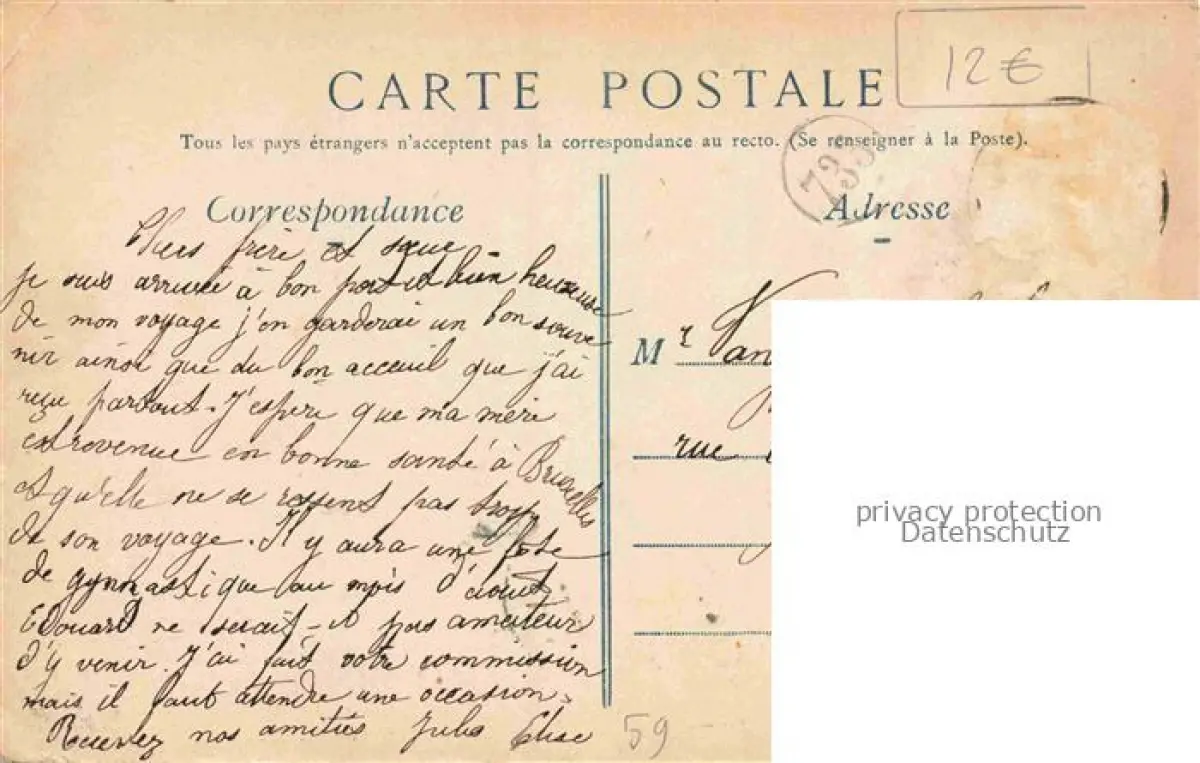 12€
CARTE POSTALE
Tous les pays étrangers n'acceptent pas la correspondance au recto. (Se renseigner à la Poste).
733
Correspondance
Adresse
Chers frère et sœur
je suis arrivée à bon port et bien heureuse
de mon voyage j'en garderai un bon souve
nir ainsi que du bon acceuil que j'ai
reçu partout. J'espère que ma mère
est revenue en bonne santé à Bruxelles
et qu'elle ne se ressent pas trop
de son voyage. Il y aura une fête
de gymnastique au mois d'aout
Edouard ne serait-il pas amateur
d'y venir. J'ai fait votre commission
mais il faut attendre une occasion.
Recevez nos amitiés Jules Elise
Mr Van
rue
privacy protection
Datenschutz
59